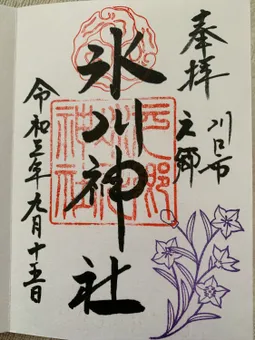 奉拝
川口市
元郷
氷川神社
元郷
氷川
神社
令和三年九月十五日